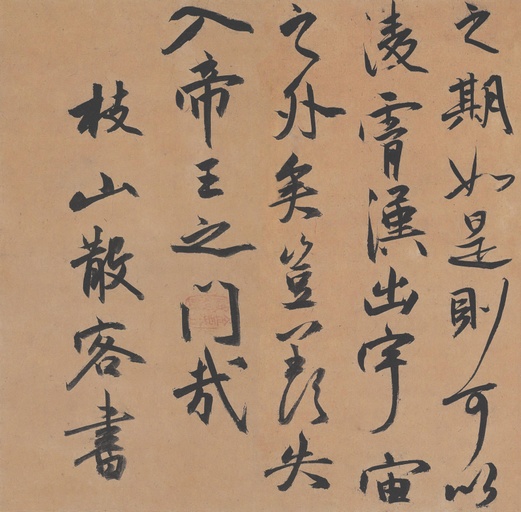 之期如是則可以
淩霄漢出宇宙
之外矣豈羨夫
入帝王之門哉
枝山散客書